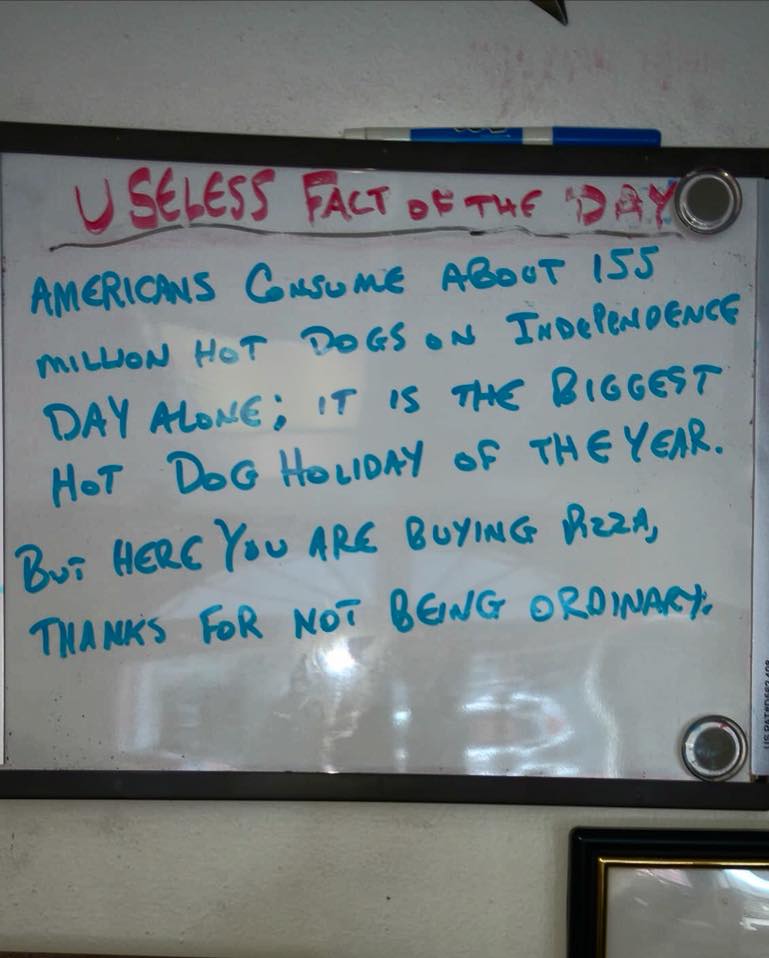 USELESS FACT OF THE DAY
AMERICANS CONSUME ABOUT 155
MILLION HOT DOGS ON INDEPENDENCE
DAY ALONE; IT IS THE BIGGEST
HOT DOG HOLIDAY OF THE YEAR.
BUT HERE YOU ARE BUYING PIZZA,
THANKS FOR NOT BEING ORDINARY.